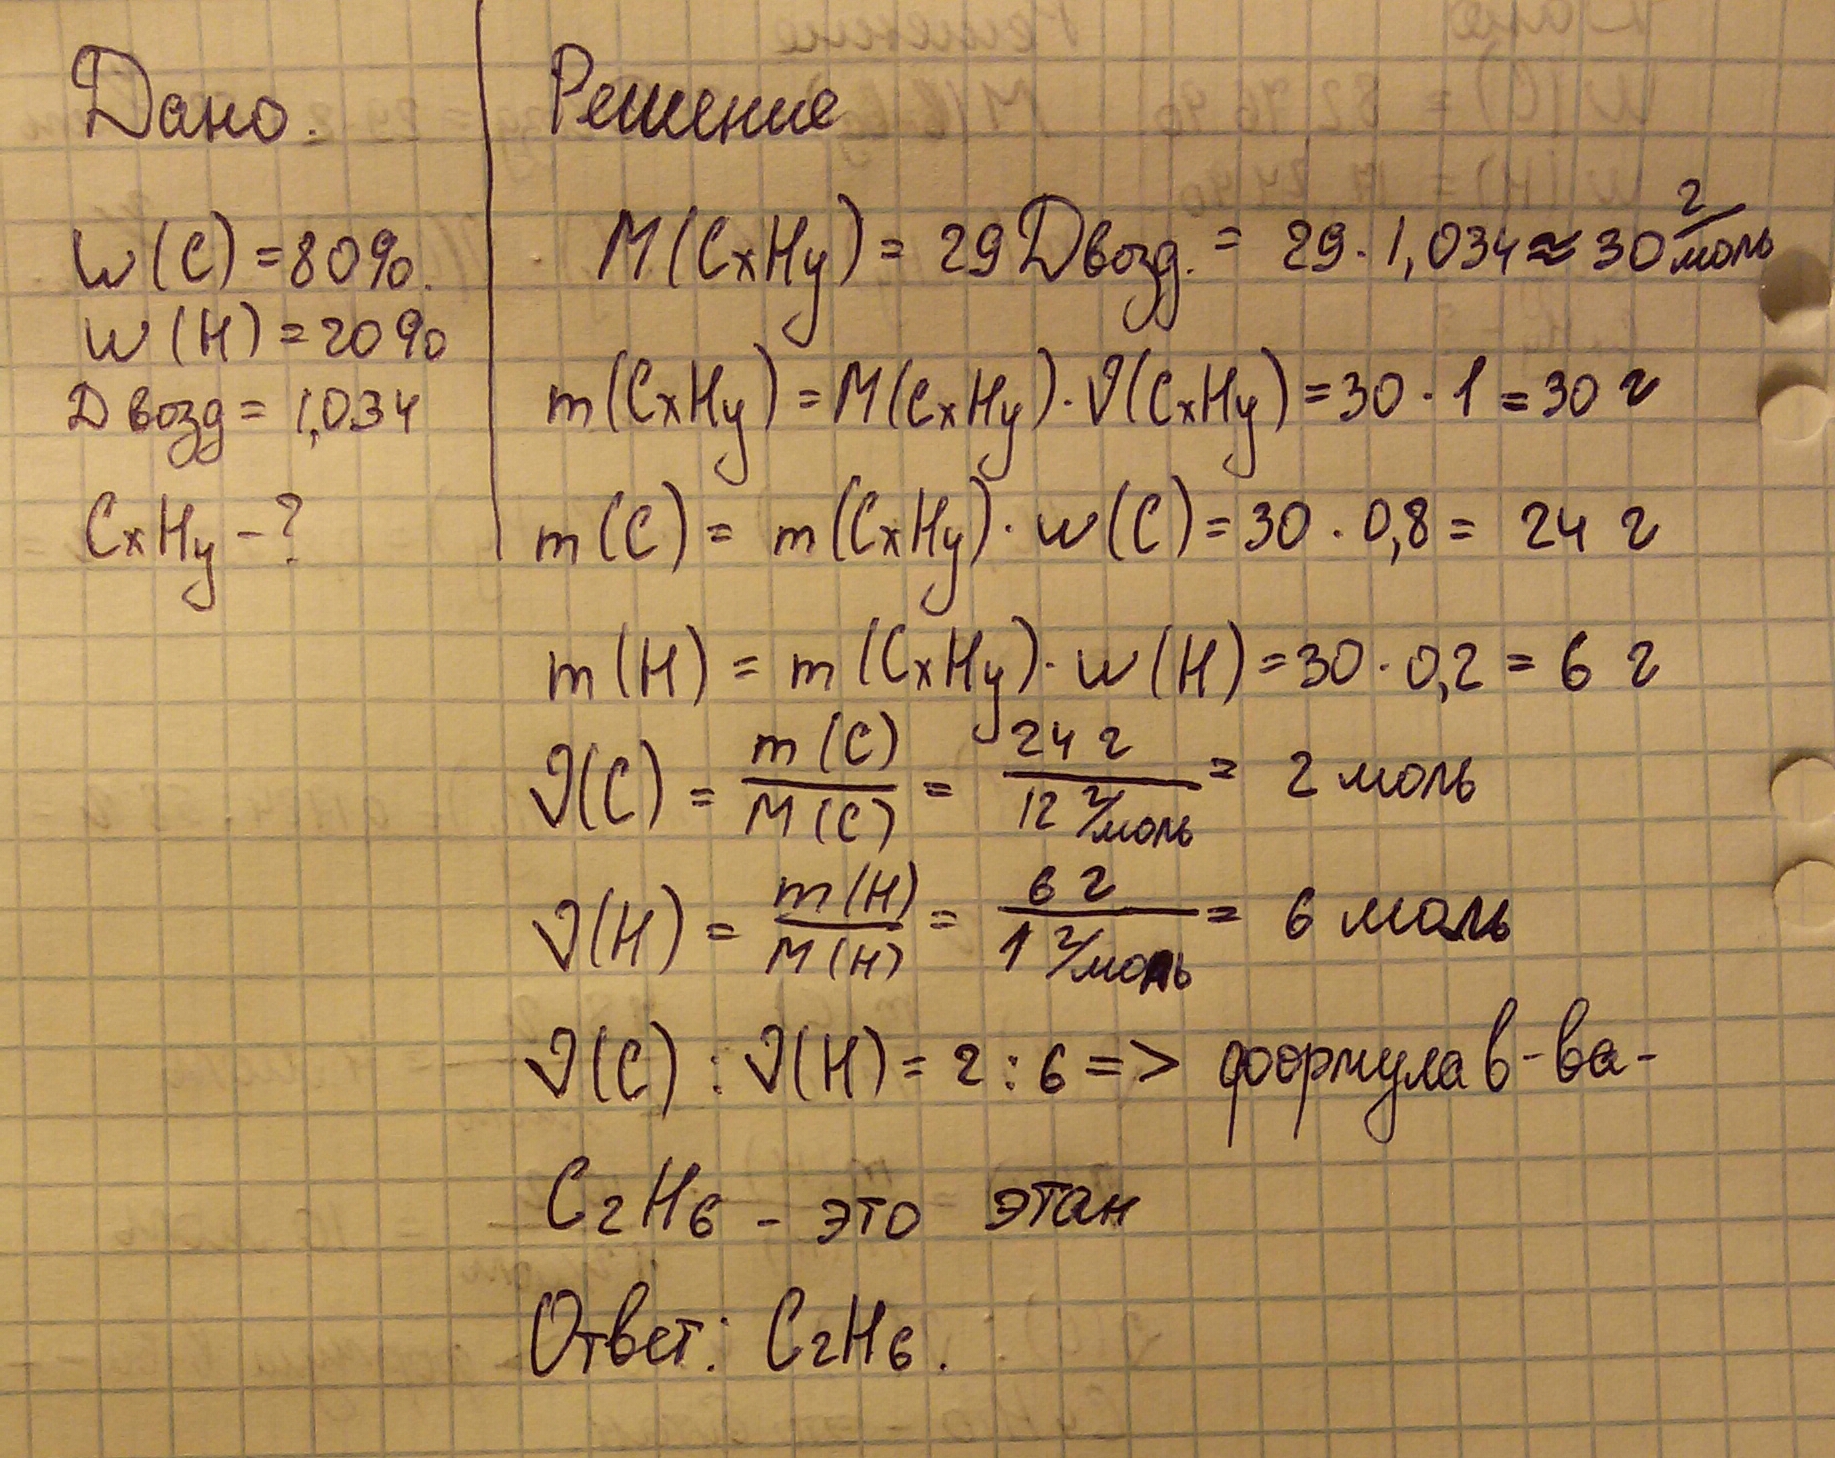 Дано.
W(C) = 80%.
W(H) = 20%
Д возд = 1,034
CxHy - ?
Решение
M(CxHy) = 29 Двозд. = 29 · 1,034 ≈ 30 г/моль
m(CxHy) = M(CxHy) · ϑ(CxHy) = 30 · 1 = 30 г
m(C) = m(CxHy) · w(C) = 30 · 0,8 = 24 г
m(H) = m(CxHy) · w(H) = 30 · 0,2 = 6 г
ϑ(C) = m(C)/M(C) = 24 г/12 г/моль = 2 моль
ϑ(H) = m(H)/M(H) = 6 г/1 г/моль = 6 моль
ϑ(C) : ϑ(H) = 2 : 6 => формула в-ва -
C2H6 - это этан
Ответ: C2H6.